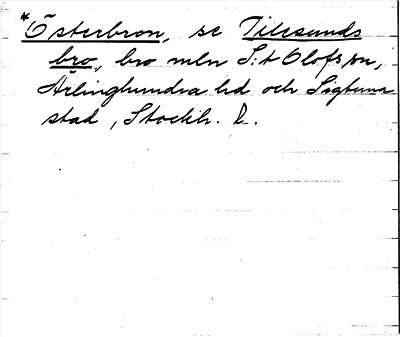 *Österbron, se Tilesunds
bro, bro mln S:t Olofs sn,
Ärlinghundra hd och Sigtuna
stad, Stockh. l.